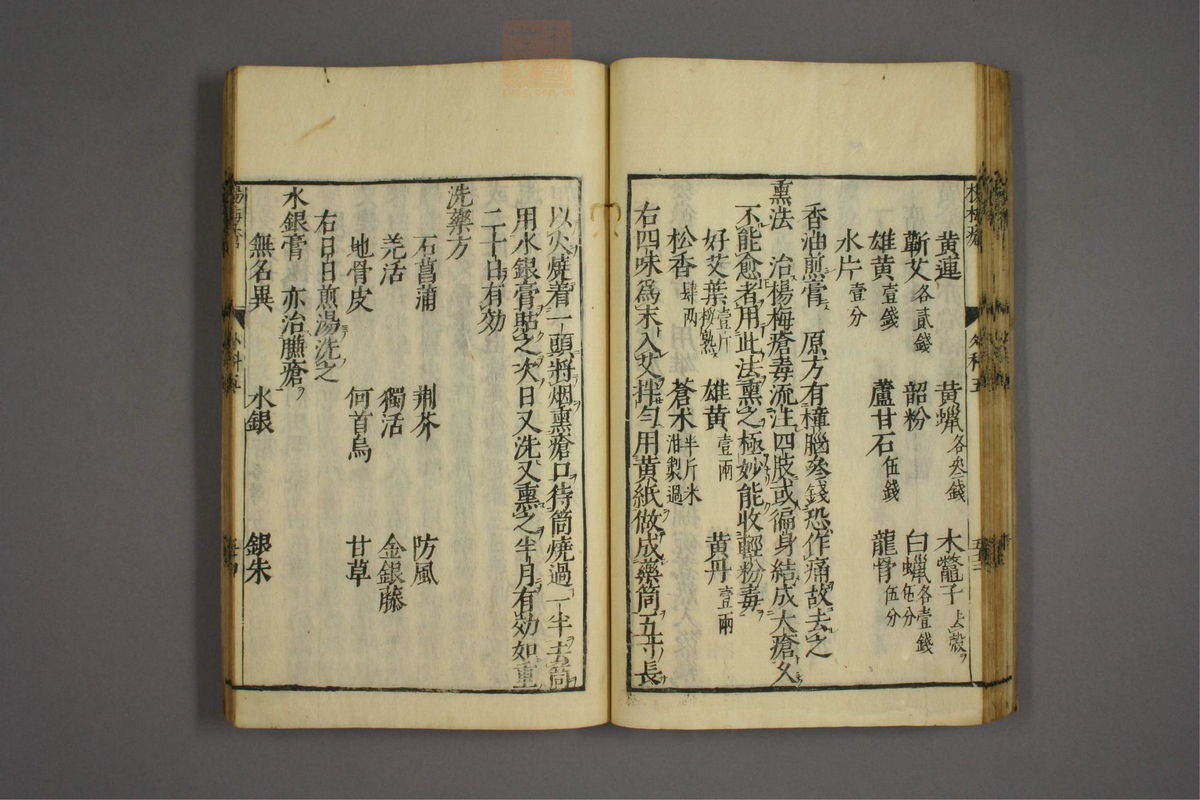 黄連 黄蝋各叄錢 木鼈子去殻
蘄艾各貳錢 韶粉 白蝋各壹錢伍分
雄黄壹錢 蘆甘石伍錢 龍骨伍分
氷片壹分
香油煎膏 原方有樟腦叄錢恐作痛故去之
熏法 治楊梅瘡毒流注四肢或徧身結成大瘡久
不能愈者用此法熏之極妙能收輕粉毒
好艾葉壹斤挼熟 雄黄壹兩 黄丹壹兩
松香肆两 蒼朮半斤米泔製過
右四味為末入艾拌勻用黄紙做成藥筒五寸長
以火燒着一頭將烟熏瘡口待筒燒過一半去筒
用水銀膏貼之次日又洗又熏之半月有効如重
二十日有効
洗藥方
石菖蒲 荆芥 防風
羌活 獨活 金銀藤
地骨皮 何首烏 甘草
右日日煎湯洗之
水銀膏 亦治臁瘡
無名異 水銀 銀朱
外科